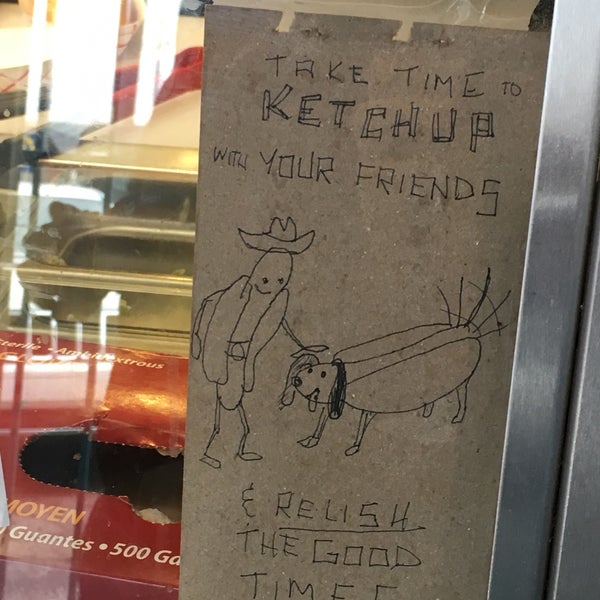 TAKE TIME TO
KETCHUP
WITH YOUR FRIENDS
& RELISH
THE GOOD
TIMES
Ambidextrous
MOYEN
Guantes • 500 Ga